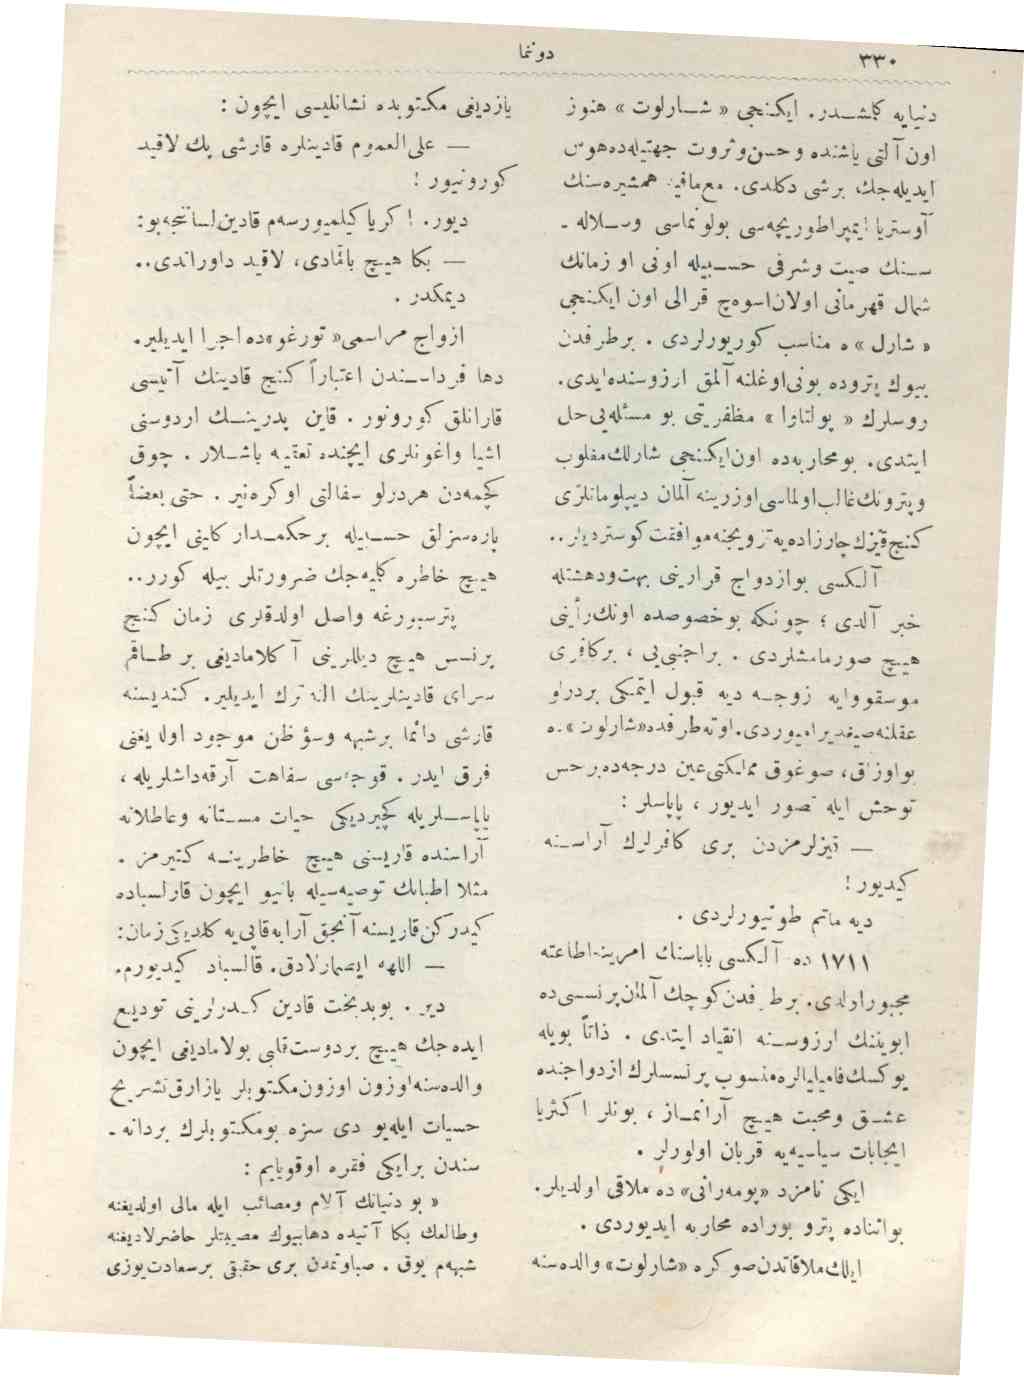 ٣٣٠
دوننما
دنيايه كلمشـدر. ايكنجى « شـارلوت » هنوز
اون آلتى ياشنده وحسن وثروت جهتيله ده هوس
ايديله جك برشى دكلدى. مع مافيه همشيره سنك
آوستريا ايمپراطوريچه سى بولونماسى وسـلاله ـ
سـنك صيت وشرفى حسـبيله اونى او زمانك
شمال قهرمانى اولان اسوه چ قرالى اون ايكنجى
« شارل » ه مناسب كوريورلردى . برطرفدن
بيوك پتروده بونى اوغلنه آلمق ارزوسنده ايدى.
روسلرك « پولتاوا » مظفريتى بو مسئله يى حل
ايتدى. بومحاربه ده اون ايكنجى شارلك مغلوب
وپترونك غالب اولماسى اوزرينه آلمان ديپلوماتلرى
كنج قيزك چارزاده يه تزويجنه موافقت كوسترديلر..
آلـكسى بوازدواج قرارينى بهت ودهشتله
خبر آلدى ؛ چونكه بوخصوصده اونك رأينى
هيـچ صورمامشلردى . براجنبى يى ، بركافرى
موسقووايه زوجـه ديه قبول ايتمكى بردرلو
عقلنه صيغديراميوردى. اوته طرفده «شارلوت» ده
بواوزاق، صوغوق مملكتى عين درجه ده برحس
توحش ايله تصور ايديور ، پاپاسلر :
— قيزلرمزدن برى كافرلرك آراسـنه
كيديور!
ديه ماتم طوتيورلردى .
١٧١١ ده آلـكسى باباسنك امرينه اطاعته
مجبور اولدى. برطرفدن كوچك آلمان پرنسسى ده
ابويننك ارزوسـنه انقياد ايتدى . ذاتاً بويله
يوكسك فاميليالره منسوب پرنسسلرك ازدواجنده
عشـق ومحبت هيـچ آرانمـاز ، بونلر اكثريا
ايجابات سياسيه يه قربان اولورلر .
ايكى نامزد «پومه رانى» ده ملاقى اولديلر.
بواثناده پترو بوراده محاربه ايديوردى .
ايلك ملاقاتدن صوكره «شارلوت» والده سنه
يازديغى مكتوبده نشانليسى ايچون :
— على العموم قادينلره قارشى پك لاقيد
كورونيور !
ديور. اكر ياكيلميورسه م قادين لسانجه بو:
— بكا هيـچ باقمادى، لاقيد داوراندى..
ديمكدر .
ازواج مراسمى « تورغو» ده اجرا ايديلير.
دها فرداسـندن اعتباراً كنج قادينك آتيسى
قارانلق كورونور . قاين پدرينـك اردوسنى
اشيا واغونلرى ايچنده تعقيبه باشـلار . چوق
كچمه دن هردرلو سفالتى اوكره نير . حتى بعضاً
پاره سزلق حسـبيله برحكمـدار كلينى ايچون
هيـچ خاطره كلميه جك ضرورتلر بيله كورر..
پترسبورغه واصل اولدقلرى زمان كنج
پرنسس هيـچ ديللرينى آكلاماديغى برطـاقم
سراى قادينلرينك النه ترك ايديلير. كنديسنه
قارشى دائما برشبهه وسؤ ظن موجود اولديغنى
فرق ايدر . قوجه سى سفاهت آرقه داشلريله ،
پاپاسـلريله كچيرديكى حيات مسـتانه وعاطلانه
آراسنده قاريسنى هيـچ خاطرينـه كتيرمز .
مثلا اطبانك توصيه سيله بانيو ايچون قارلسباده
كيدركن قاريسنه آنجق آرابه قاپى يه كلديكى زمان:
— اللهه ايصمارلادق. قالسباد كيديورم.
دير . بوبدبخت قادين كـدرلرينى توديع
ايده جك هيـچ بردوست قلبى بولاماديغى ايچون
والده سنه اوزون اوزون مكتوبلر يازارق تشريح
حسيات ايله يو دى سزه بومكتوبلرك بردانه ـ
سندن برايكى فقره اوقويايم :
« بو دنيانك آلام ومصائب ايله مالى اولديغنه
وطالعك بكا آتيده دهابيوك مصيبتلر حاضرلاديغنه
شبهه م يوق . صباوتمدن برى حقيقى برسعادت يوزى